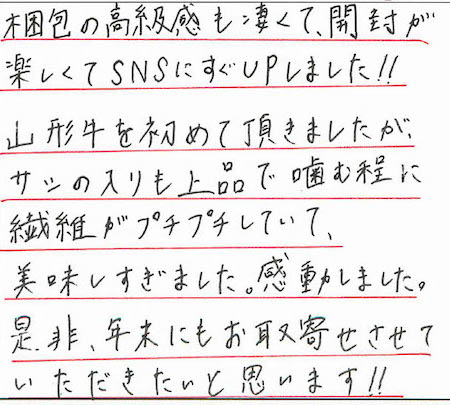 梱包の高級感も凄くて、開封が
楽しくてSNSにすぐUPしました!!
山形牛を初めて頂きましたが、
サシの入りも上品で噛む程に
繊維がプチプチしていて、
美味しすぎました。感動しました。
是非、年末にもお取寄せさせて
いただきたいと思います!!